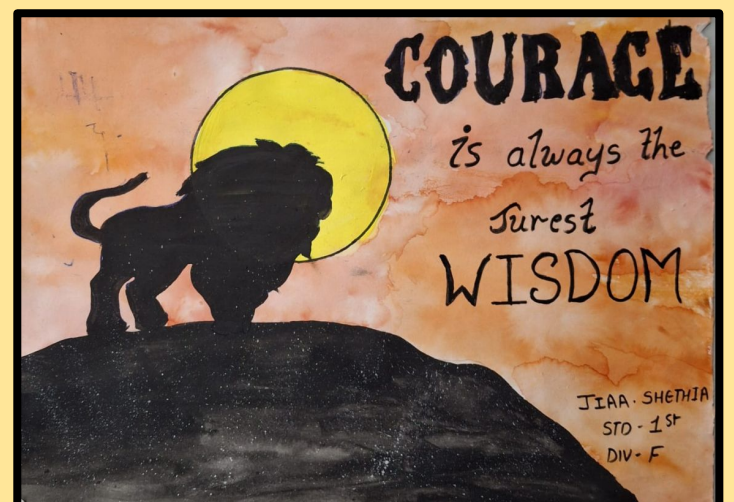 COURAGE
is always the
surest
WISDOM
JIAA. SHETHIA
STD - 1st
DIV- F